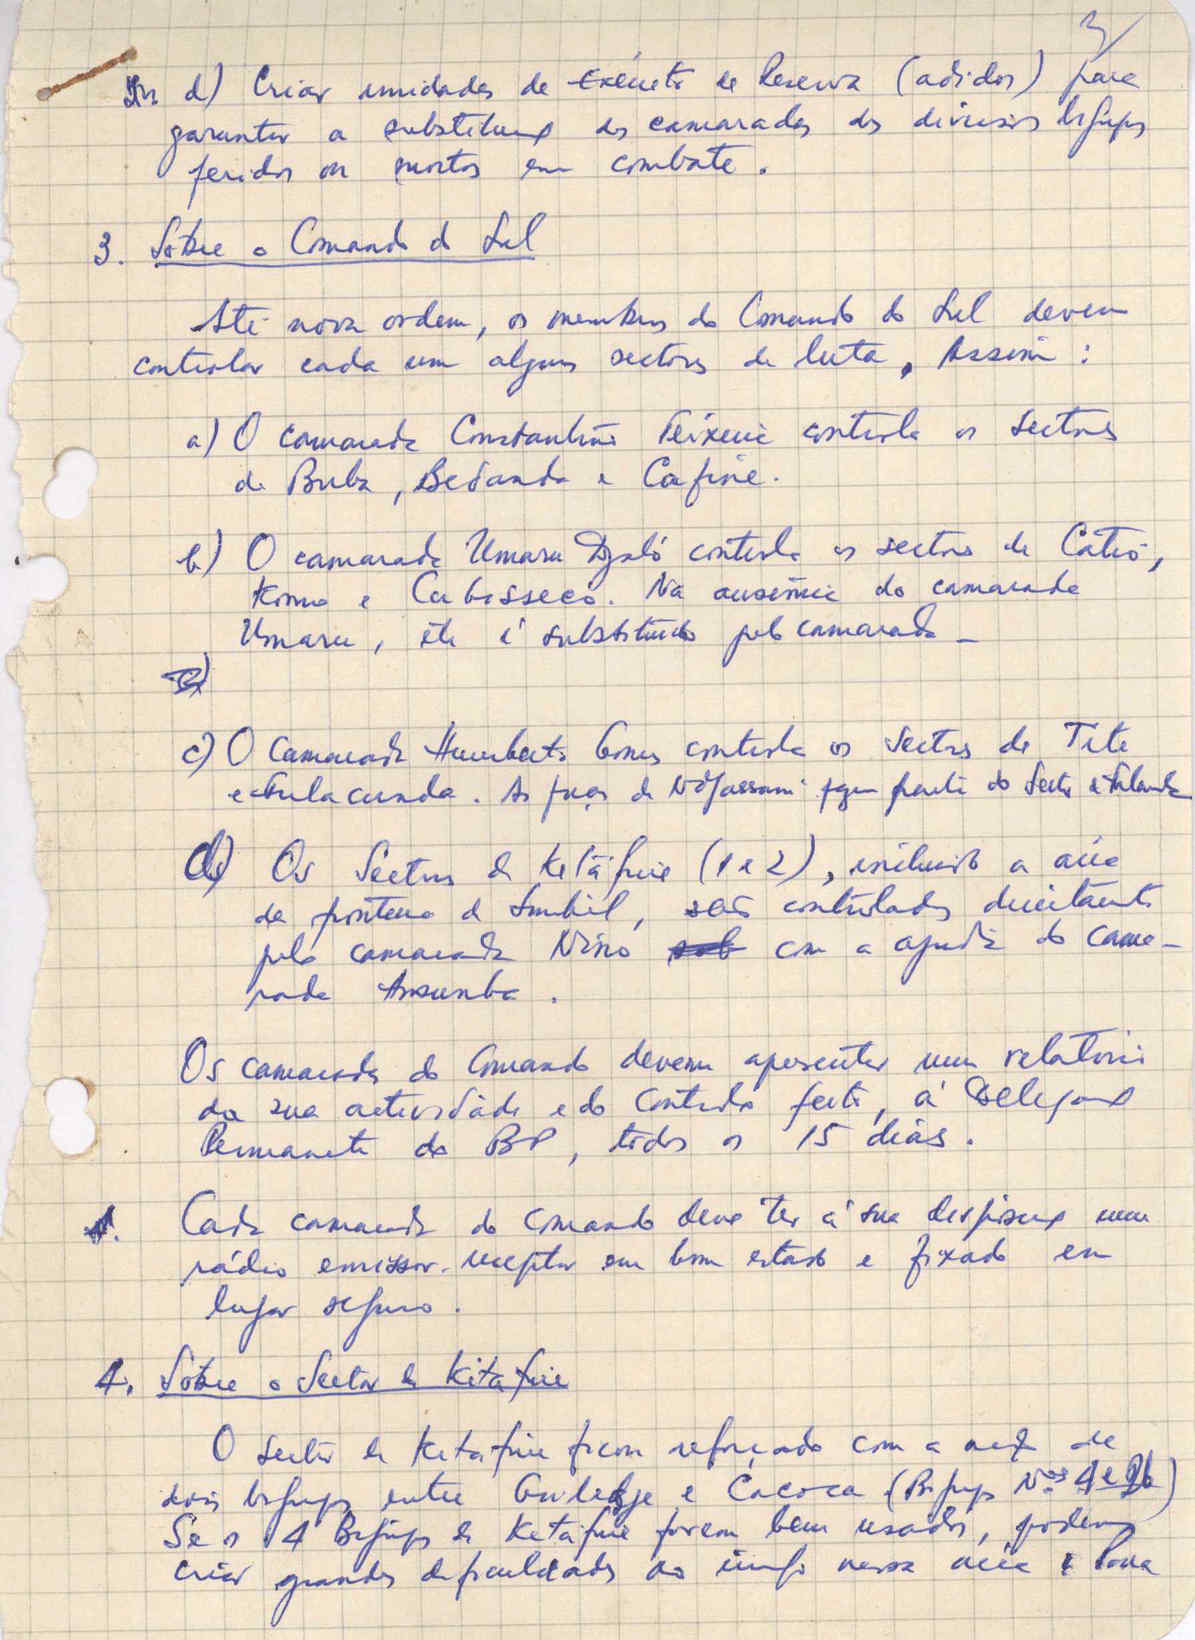 3/
d) Criar unidades de Exército de Reserva (adidos) para
garantir a substituição dos camaradas dos diversos bigrupos
feridos ou mortos em combate.
3. Sobre o Comando do Sul
Até nova ordem, os membros do Comando do Sul devem
controlar cada um alguns sectores de luta, Assim:
a) O camarada Constantino Teixeira controla os sectores
de Buba, Bedanda e Cafine.
b) O camarada Umaru Djaló controla os sectores de Catió,
Komo e Cubisseco. Na ausência do camarada
Umaru, êle é substituído pelo camarada _
c) O camarada Humberto Gomes controla os sectores de Tite
e Fulacunda. As forças de N'Djassani fazem parte do Sector de Fulacunda
d) Os Sectores de Ketáfine (1 e 2), incluindo a área
da fronteira de Simbél, são controlados directamente
pelo camarada Nino com a ajuda do cama-
rada Ansumba.
Os camaradas do Comando devem apresentar um relatório
da sua actividade e do controlo feito, à Delegação
Permanente do BP, todos os 15 dias.
Cada camarada do comando deve ter à sua disposição um
rádio emissor-receptor em bom estado e fixado em
lugar seguro.
4. Sobre o Sector de Kitafine
O sector de Ketafine ficou reforçado com a acção de
dois bigrupos entre Guiledge e Cacoca (Bigrupos Nos 4 e 26)
Se os 4 Bigrupos de Ketafine forem bem usados, podemos
criar grandes dificuldades ao inimigo nessa área e para